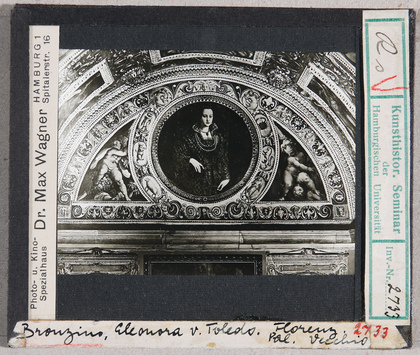 Photo- u. Kino-
Spezialhaus
Dr. Max Wagner
HAMBURG 1
Spitalerstr. 16
V
Kunsthistor. Seminar
der
Hamburgischen Universität
Inv.-Nr. 2733
Bronzino, Eleonora v. Toledo. Florenz 2733
Pal. Vecchio